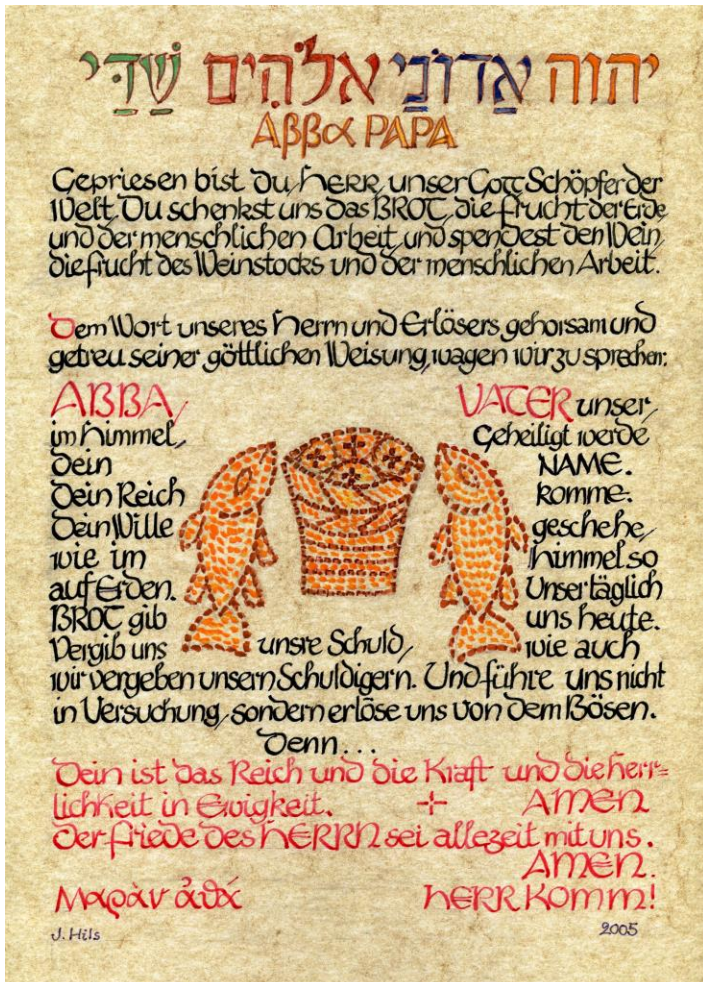 יהוה אֲדוֹנַי אלֹהִים שַׁדַּי
Αββα PAPA
Gepriesen bist du, HERR, unser Gott Schöpfer der
Welt. Du schenkst uns das BROT, die Frucht der Erde
und der menschlichen Arbeit, und spendest den Wein,
die Frucht des Weinstocks und der menschlichen Arbeit.
Dem Wort unseres Herrn und Erlösers gehorsam und
getreu seiner göttlichen Weisung, wagen wir zu sprechen:
ABBA, VATER unser,
im Himmel, Geheiligt werde
Dein NAME.
Dein Reich komme.
Dein Wille geschehe,
wie im Himmel so
auf Erden. Unser täglich
BROT gib uns heute.
Vergib uns unsre Schuld, wie auch
wir vergeben unsern Schuldigern. Und führe uns nicht
in Versuchung, sondern erlöse uns von dem Bösen.
Denn...
Dein ist das Reich und die Kraft und die Herr=
lichkeit in Ewigkeit. AMEN
Der Friede des HERRN sei allezeit mit uns.
AMEN.
Μαρὰν ἀθά HERR KOMM!
J. Hils 2005